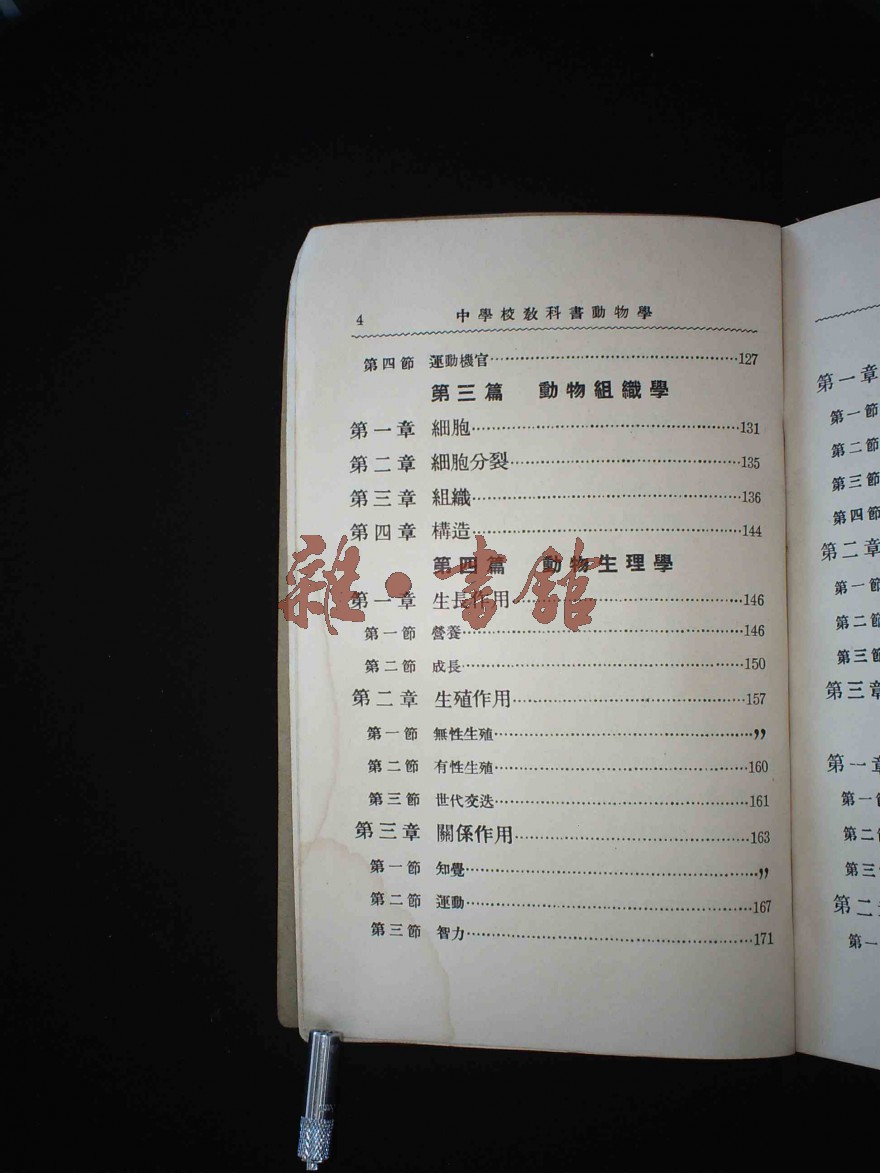 4 中學校教科書動物學
第四節 運動機官……127
第三篇 動物組織學
第一章 細胞……131
第二章 細胞分裂……135
第三章 組織……136
第四章 構造……144
第四篇 動物生理學
第一章 生長作用……146
第一節 營養……146
第二節 成長……150
第二章 生殖作用……157
第一節 無性生殖……”
第二節 有性生殖……160
第三節 世代交迭……161
第三章 關係作用……163
第一節 知覺……”
第二節 運動……167
第三節 智力……171
雜·書館
第一章
第一節
第二節
第三節
第四節
第二章
第一節
第二節
第三節
第三章
第一章
第一節
第二節
第三節
第二章
第一